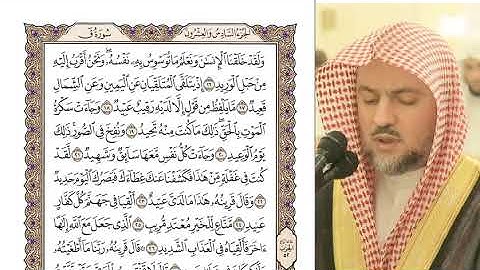 سُورَةُ قٓ
الجُزْءُ السَّادِسُ وَالعِشْرُونَ
وَلَقَدْ خَلَقْنَا ٱلْإِنسَٰنَ وَنَعْلَمُ مَا تُوَسْوِسُ بِهِۦ نَفْسُهُۥ ۖ وَنَحْنُ أَقْرَبُ إِلَيْهِ
مِنْ حَبْلِ ٱلْوَرِيدِ ١٦ إِذْ يَتَلَقَّى ٱلْمُتَلَقِّيَانِ عَنِ ٱلْيَمِينِ وَعَنِ ٱلشِّمَالِ
قَعِيدٌ ١٧ مَّا يَلْفِظُ مِن قَوْلٍ إِلَّا لَدَيْهِ رَقِيبٌ عَتِيدٌ ١٨ وَجَآءَتْ سَكْرَةُ
ٱلْمَوْتِ بِٱلْحَقِّ ۖ ذَٰلِكَ مَا كُنتَ مِنْهُ تَحِيدُ ١٩ وَنُفِخَ فِى ٱلصُّورِ ۚ ذَٰلِكَ
يَوْمُ ٱلْوَعِيدِ ٢٠ وَجَآءَتْ كُلُّ نَفْسٍ مَّعَهَا سَآئِقٌ وَشَهِيدٌ ٢١ لَّقَدْ
كُنتَ فِى غَفْلَةٍ مِّنْ هَٰذَا فَكَشَفْنَا عَنكَ غِطَآءَكَ فَبَصَرُكَ ٱلْيَوْمَ حَدِيدٌ
٢٢ وَقَالَ قَرِينُهُۥ هَٰذَا مَا لَدَىَّ عَتِيدٌ ٢٣ أَلْقِيَا فِى جَهَنَّمَ كُلَّ كَفَّارٍ
عَنِيدٍ ٢٤ مَّنَّاعٍ لِّلْخَيْرِ مُعْتَدٍ مُّرِيبٍ ٢٥ ٱلَّذِى جَعَلَ مَعَ ٱللَّهِ إِلَٰهًا
ءَاخَرَ فَأَلْقِيَاهُ فِى ٱلْعَذَابِ ٱلشَّدِيدِ ٢٦ قَالَ قَرِينُهُۥ رَبَّنَا مَآ أَطْغَيْتُهُۥ
وَلَٰكِن كَانَ فِى ضَلَٰلٍۭ بَعِيدٍ ٢٧ قَالَ لَا تَخْتَصِمُوا۟ لَدَىَّ